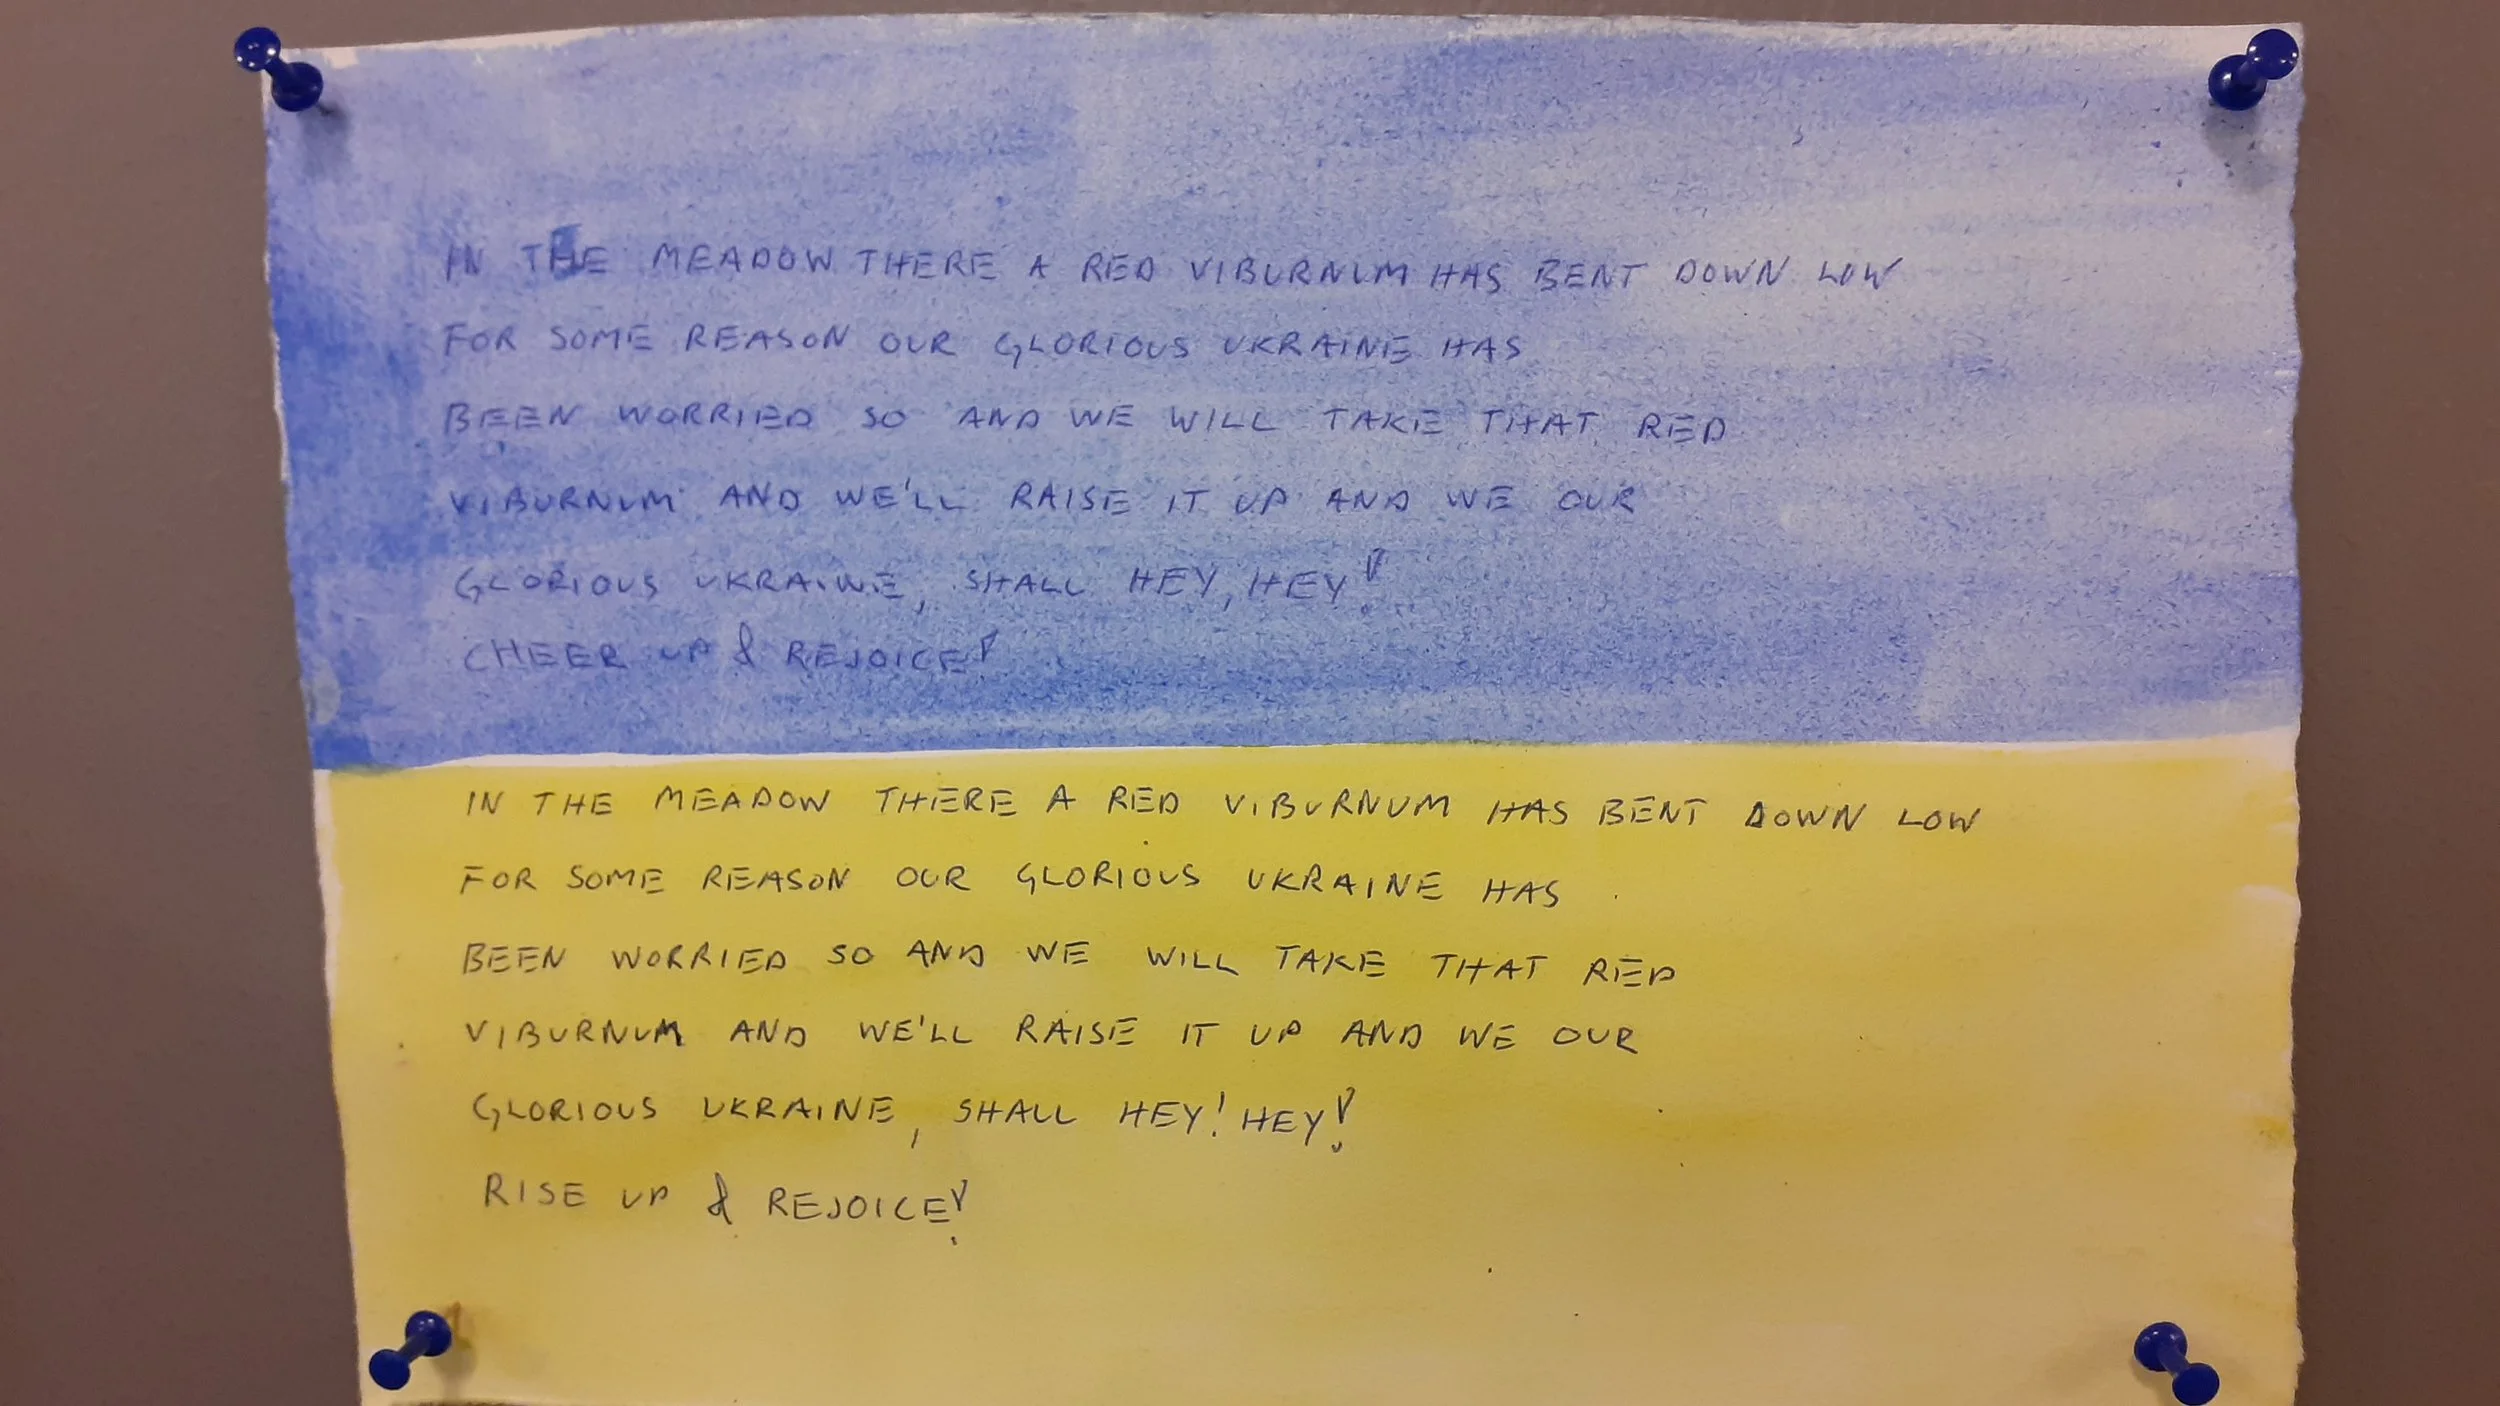 IN THE MEADOW THERE A RED VIBURNUM HAS BENT DOWN LOW
FOR SOME REASON OUR GLORIOUS UKRAINE HAS
BEEN WORRIED SO AND WE WILL TAKE THAT RED
VIBURNUM AND WE'LL RAISE IT UP AND WE OUR
GLORIOUS UKRAINE, SHALL HEY, HEY!
CHEER UP & REJOICE!
IN THE MEADOW THERE A RED VIBURNUM HAS BENT DOWN LOW
FOR SOME REASON OUR GLORIOUS UKRAINE HAS
BEEN WORRIED SO AND WE WILL TAKE THAT RED
VIBURNUM AND WE'LL RAISE IT UP AND WE OUR
GLORIOUS UKRAINE, SHALL HEY! HEY!
RISE UP & REJOICE!